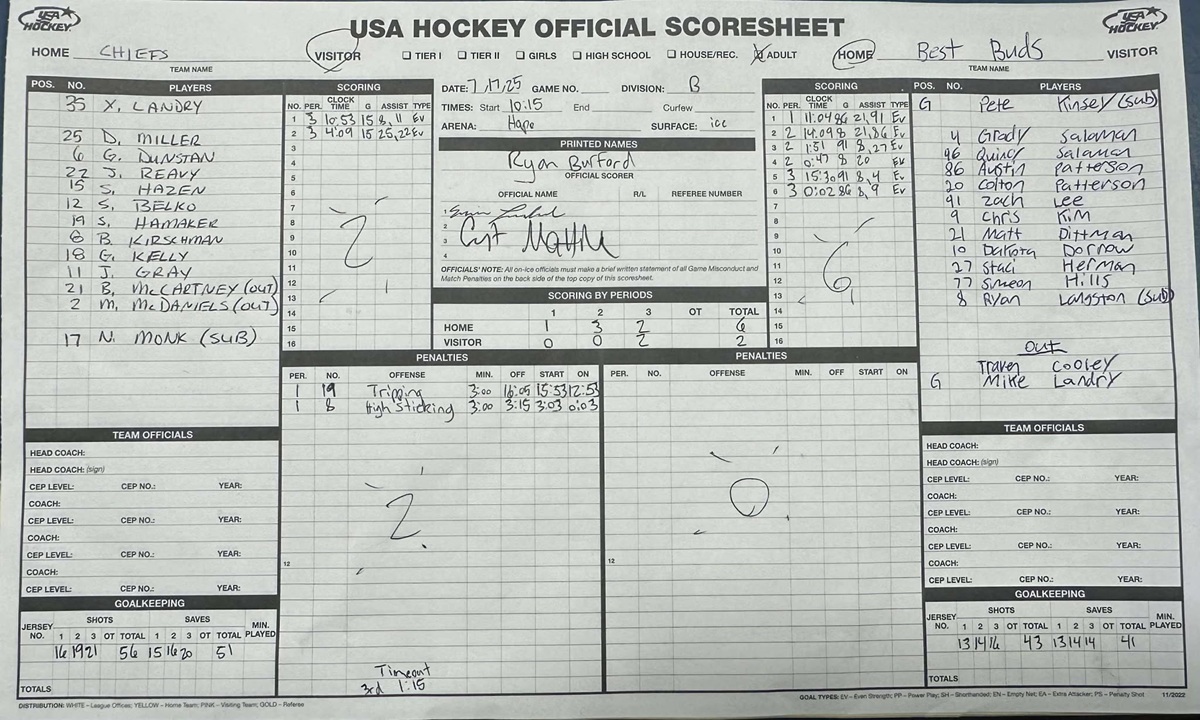 USA HOCKEY
USA HOCKEY OFFICIAL SCORESHEET
USA HOCKEY
HOME CHIEFS VISITOR
TEAM NAME
☐ TIER I ☐ TIER II ☐ GIRLS ☐ HIGH SCHOOL ☐ HOUSE/REC. ☒ ADULT
HOME Best Buds VISITOR
TEAM NAME
POS. NO. PLAYERS
35 X. LANDRY
25 D. MILLER
6 G. DUNSTAN
22 J. REAVY
15 S. HAZEN
12 S. BELKO
19 S. HAMAKER
8 B. KIRSCHMAN
18 G. KELLY
11 J. GRAY
21 B. McCARTNEY (OUT)
2 M. McDANIELS (OUT)
17 N. MONK (SUB)
SCORING
NO. PER. CLOCK TIME G ASSIST TYPE
1 3 10:53 15 8, 11 Ev
2 3 4:09 15 25,22 Ev
3
4
5
6
7
8
9
10
11
12
13
14
15
16
2
DATE: 7/17/25 GAME NO. DIVISION: B
TIMES: Start 10:15 End Curfew
ARENA: Hape SURFACE: ice
PRINTED NAMES
Ryan Burford
OFFICIAL SCORER
OFFICIAL NAME R/L REFEREE NUMBER
1
2
3
4
OFFICIALS' NOTE: All on-ice officials must make a brief written statement of all Game Misconduct and
Match Penalties on the back side of the top copy of this scoresheet.
SCORING BY PERIODS
1 2 3 OT TOTAL
HOME 1 3 2 6
VISITOR 0 0 2 2
SCORING
NO. PER. CLOCK TIME G ASSIST TYPE
1 1 11:04 86 21,91 Ev
2 2 14:09 8 21,86 Ev
3 2 1:51 91 8,27 Ev
4 2 0:47 8 20 Ev
5 3 15:30 91 8,4 Ev
6 3 0:02 86 8,9 Ev
7
8
9
10
11
12
13
14
15
16
6
POS. NO. PLAYERS
G Pete Kinsey (sub)
4 Grady Salaman
96 Quincy Salaman
86 Austin Patterson
20 Colton Patterson
91 Zach Lee
9 Chris Kim
21 Matt Dittman
10 Dakota Dorrow
27 Staci Herman
77 Simeon Hills
8 Ryan Langston (sub)
OUT
Traven Cooley
G Mike Landry
PENALTIES
PER. NO. OFFENSE MIN. OFF START ON
1 19 Tripping 3:00 16:05 15:53 12:53
1 8 High Sticking 3:00 3:15 3:03 0:03
2
12
Timeout
3rd 1:15
PENALTIES
PER. NO. OFFENSE MIN. OFF START ON
0
12
TEAM OFFICIALS
HEAD COACH:
HEAD COACH: (sign)
CEP LEVEL: CEP NO.: YEAR:
COACH:
CEP LEVEL: CEP NO.: YEAR:
COACH:
CEP LEVEL: CEP NO.: YEAR:
COACH:
CEP LEVEL: CEP NO.: YEAR:
GOALKEEPING
JERSEY NO. SHOTS SAVES MIN. PLAYED
1 2 3 OT TOTAL 1 2 3 OT TOTAL
16 19 21 56 15 16 20 51
TOTALS
TEAM OFFICIALS
HEAD COACH:
HEAD COACH: (sign)
CEP LEVEL: CEP NO.: YEAR:
COACH:
CEP LEVEL: CEP NO.: YEAR:
COACH:
CEP LEVEL: CEP NO.: YEAR:
COACH:
CEP LEVEL: CEP NO.: YEAR:
GOALKEEPING
JERSEY NO. SHOTS SAVES MIN. PLAYED
1 2 3 OT TOTAL 1 2 3 OT TOTAL
13 14 16 43 13 14 14 41
TOTALS
DISTRIBUTION: WHITE – League Offices; YELLOW – Home Team; PINK – Visiting Team; GOLD – Referee
GOAL TYPES: EV – Even Strength; PP – Power Play; SH – Shorthanded; EN – Empty Net; EA – Extra Attacker; PS – Penalty Shot 11/2022